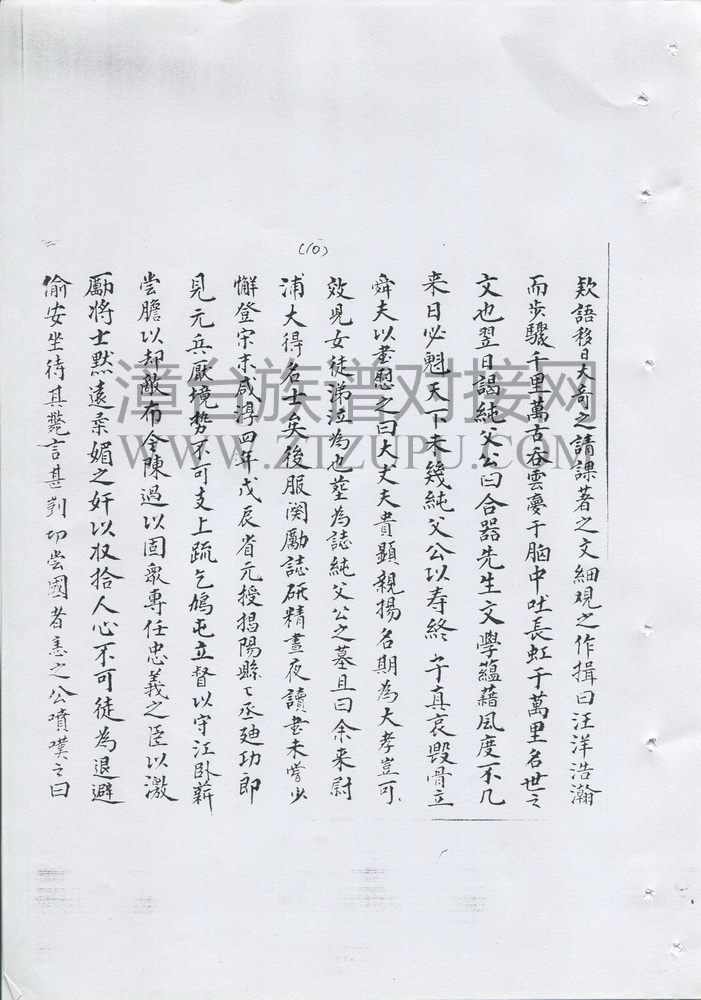 (10)
欵語移日大奇之請課著之文細观之作揖曰汪洋浩瀚
而步驟千里萬古吞雲夢于胸中吐長虹于萬里名世之
文也翌日謁純父公曰合器先生文學蘊藉風度不凡
来日必魁天下未幾純父公以寿終 子真哀毀骨立
舜夫以書慰之曰大丈夫貴顯親揚名期為大孝豈可
效児女徒涕泣為也塟為誌純父公之墓且曰余来尉
浦大得名士矣後服闋勵誌研精晝夜讀書未嘗少
懈登宋末咸淳四年戊辰省元授揭陽縣々丞廸功郎
見元兵壓境势不可支上疏乞鳩屯立督以守江卧薪
尝膽以却敵布令陳過以固衆專任忠義之臣以激
勵將士黙遠柔媚之奸以权拾人心不可徒為退避
偷安坐待其斃言甚剴切尝國者恚之公噴嘆之曰
漳台族谱对接网
WWW.ZTZUPU.COM